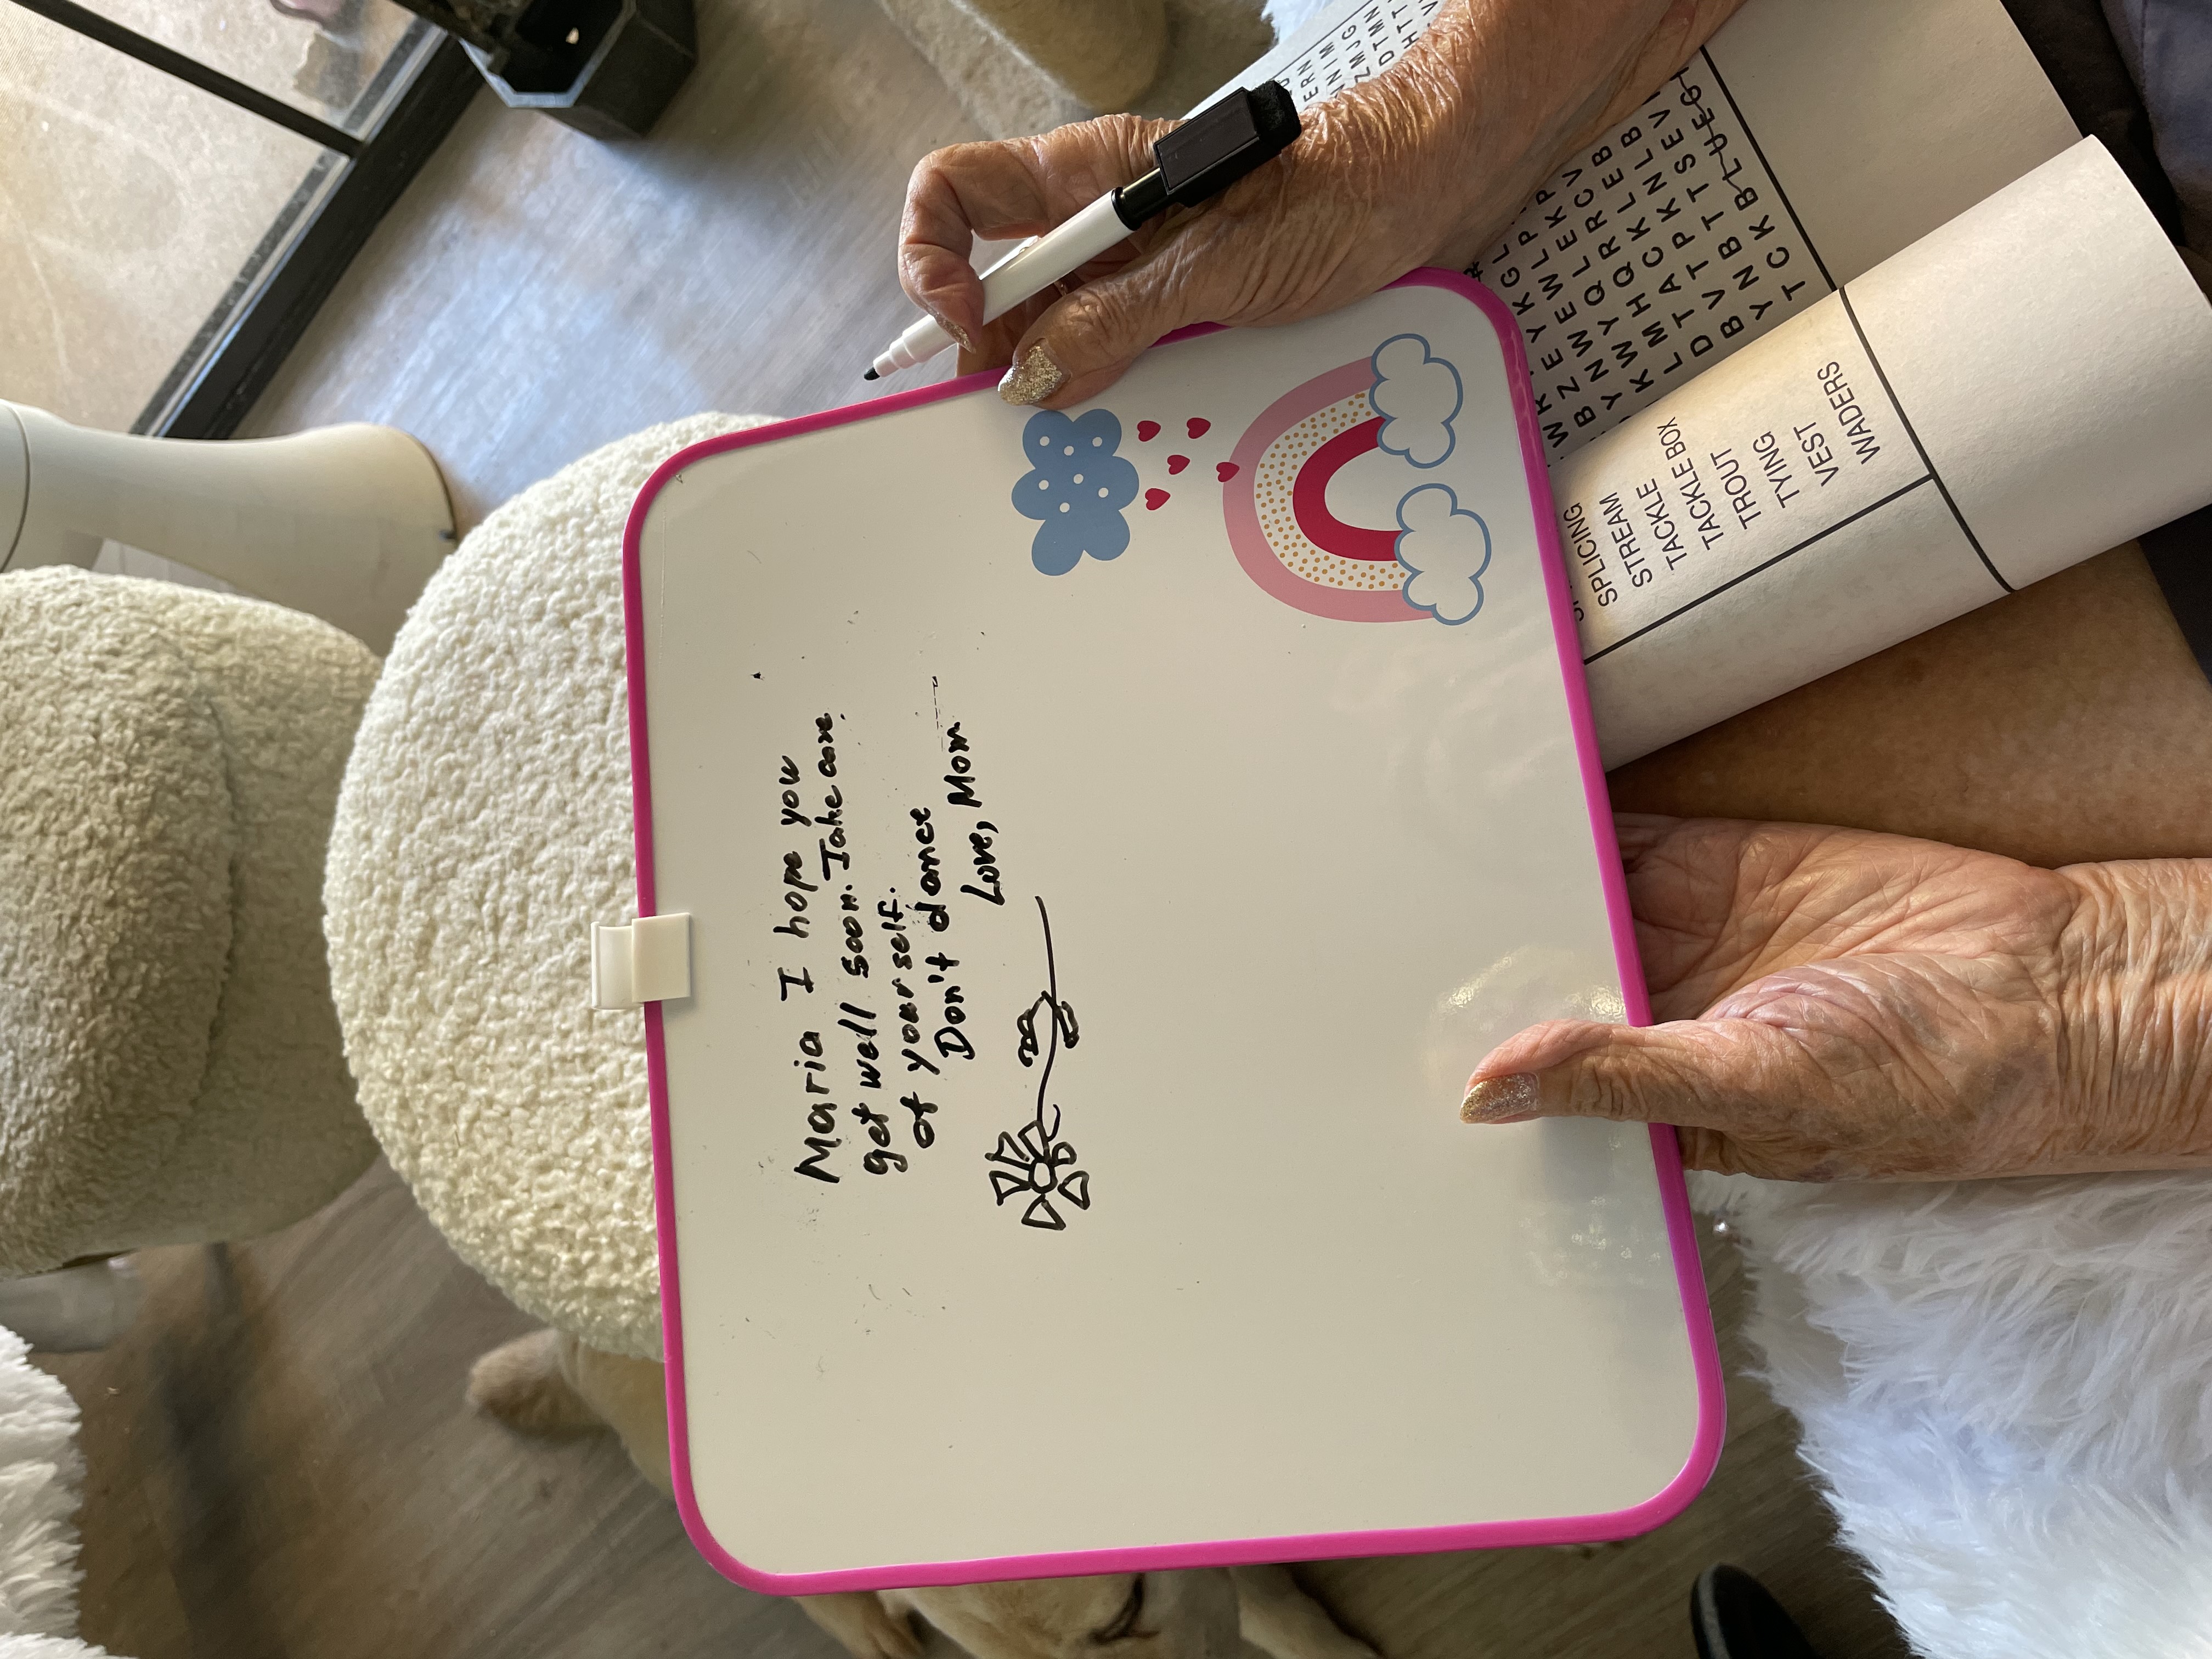 Maria I hope you
get well soon. Take care
of yourself.
Don't dance
Love, Mom
SPLICING
STREAM
TACKLE
TACKLE BOX
TROUT
TYING
VEST
WADERS
ERN
NIM
ZMJG
DTMN
HTT
BZEYKGL
YNWEWLP
KWYQLEKP
LMHQRRCV
DTACKLEB
BVTPKNLB
YNBTTSEV
TCKBLUEG